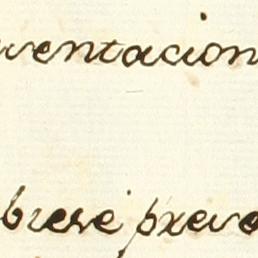 ventacion
breve preve